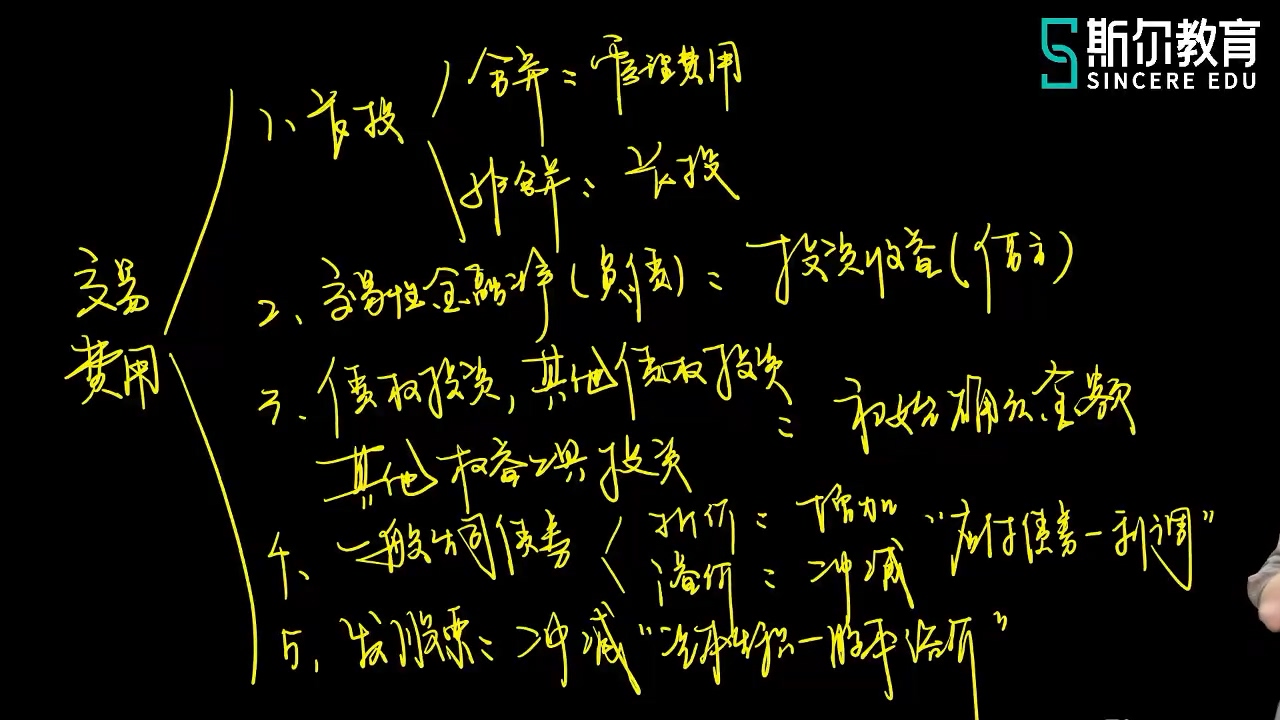 斯尔教育
SINCERE EDU
交易费用
1、长投
合并：管理费用
非合并：长投
2、交易性金融资产(负债)：投资收益(借方)
3、债权投资，其他债权投资
其他权益工具投资
：初始确认金额
4、一般公司债券
折价：增加
溢价：冲减
“应付债券－利调”
5、发股票：冲减“资本公积－股本溢价”